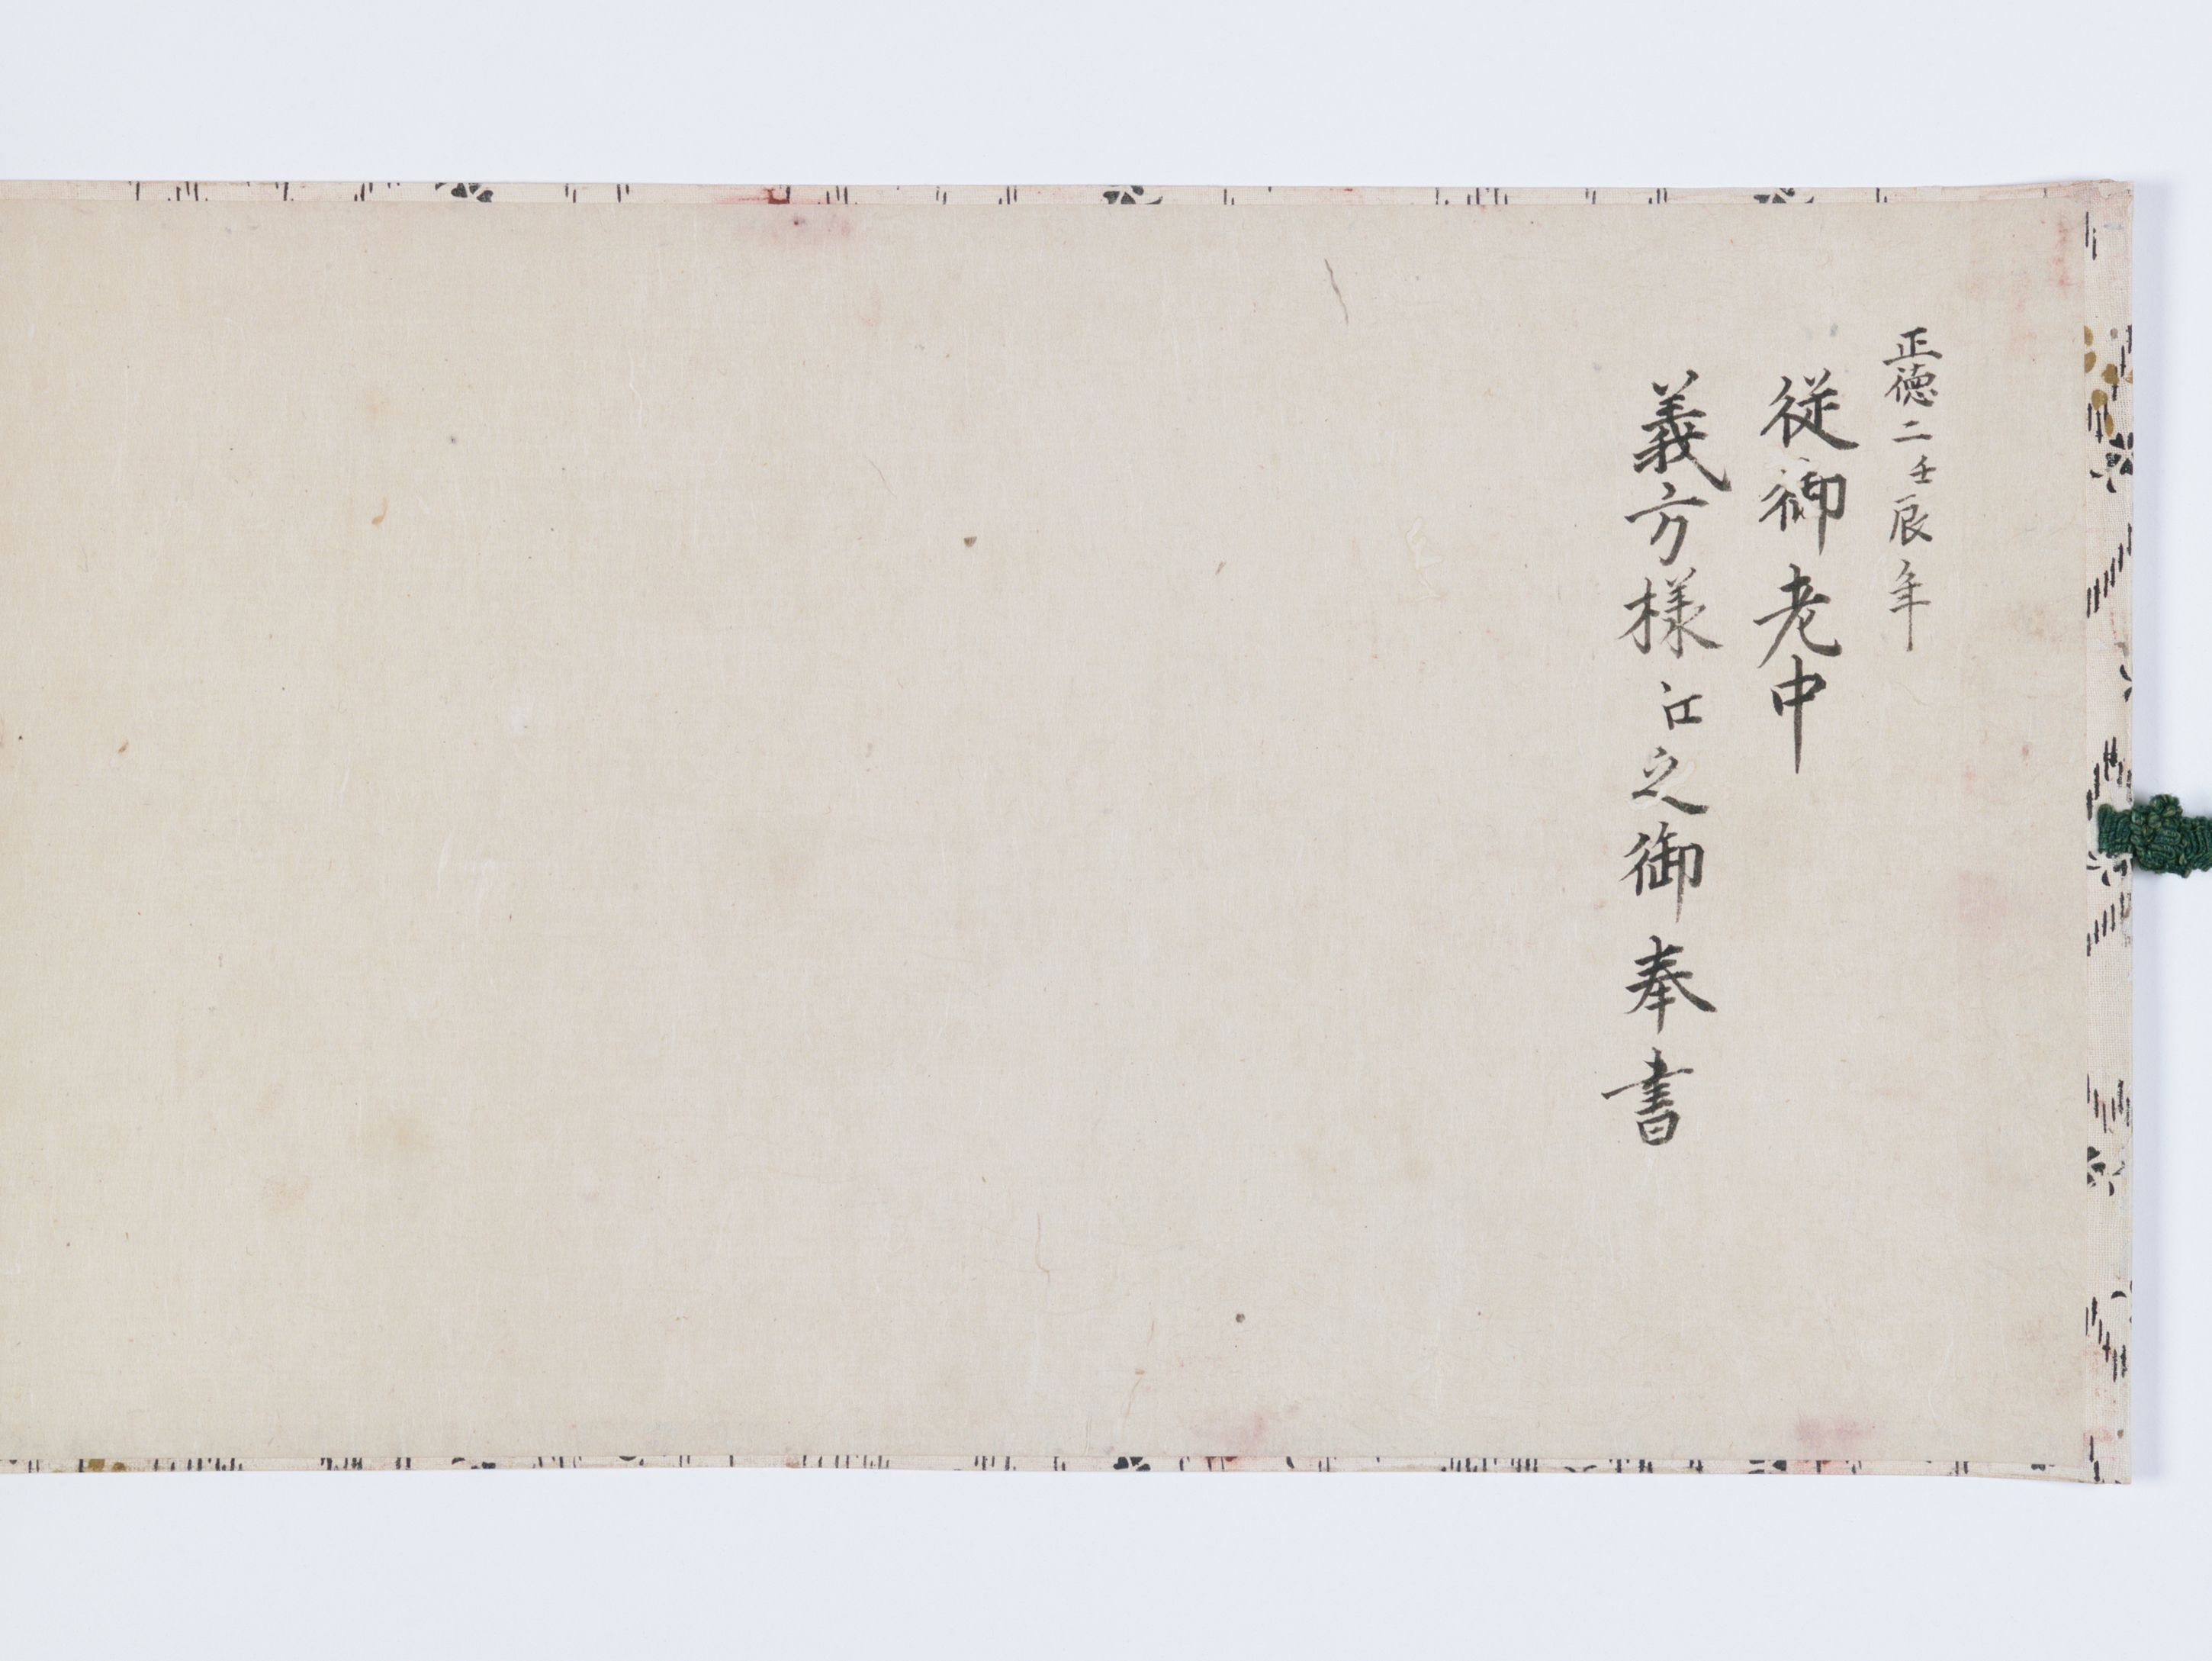 正徳二壬辰年
従御老中
義方様江之御奉書